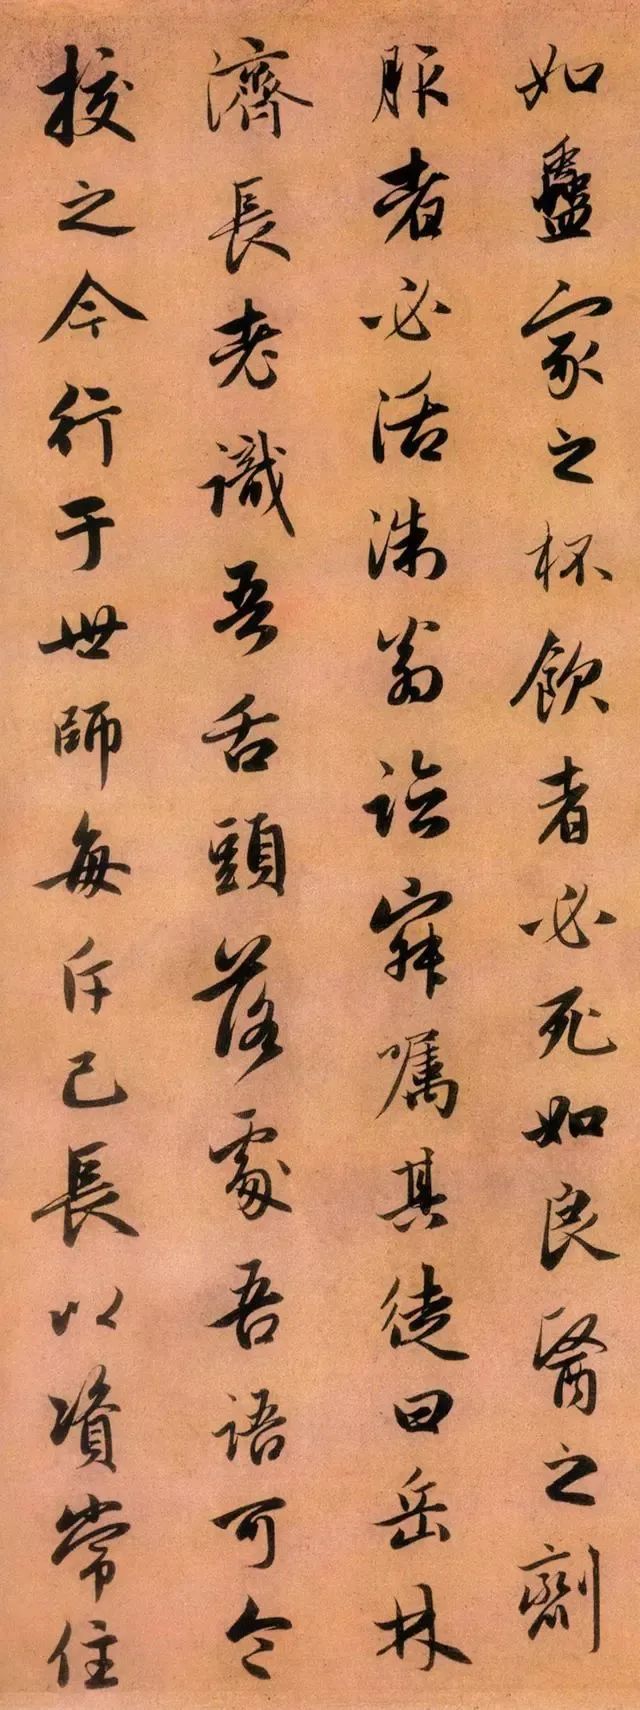 如蠱家之杯飲者必死如良醫之劑
服者必活淛翁臨寂囑其徒曰岳林
濟長老識吾舌頭落處吾語可令
校之今行于世師每斥己長以資常住